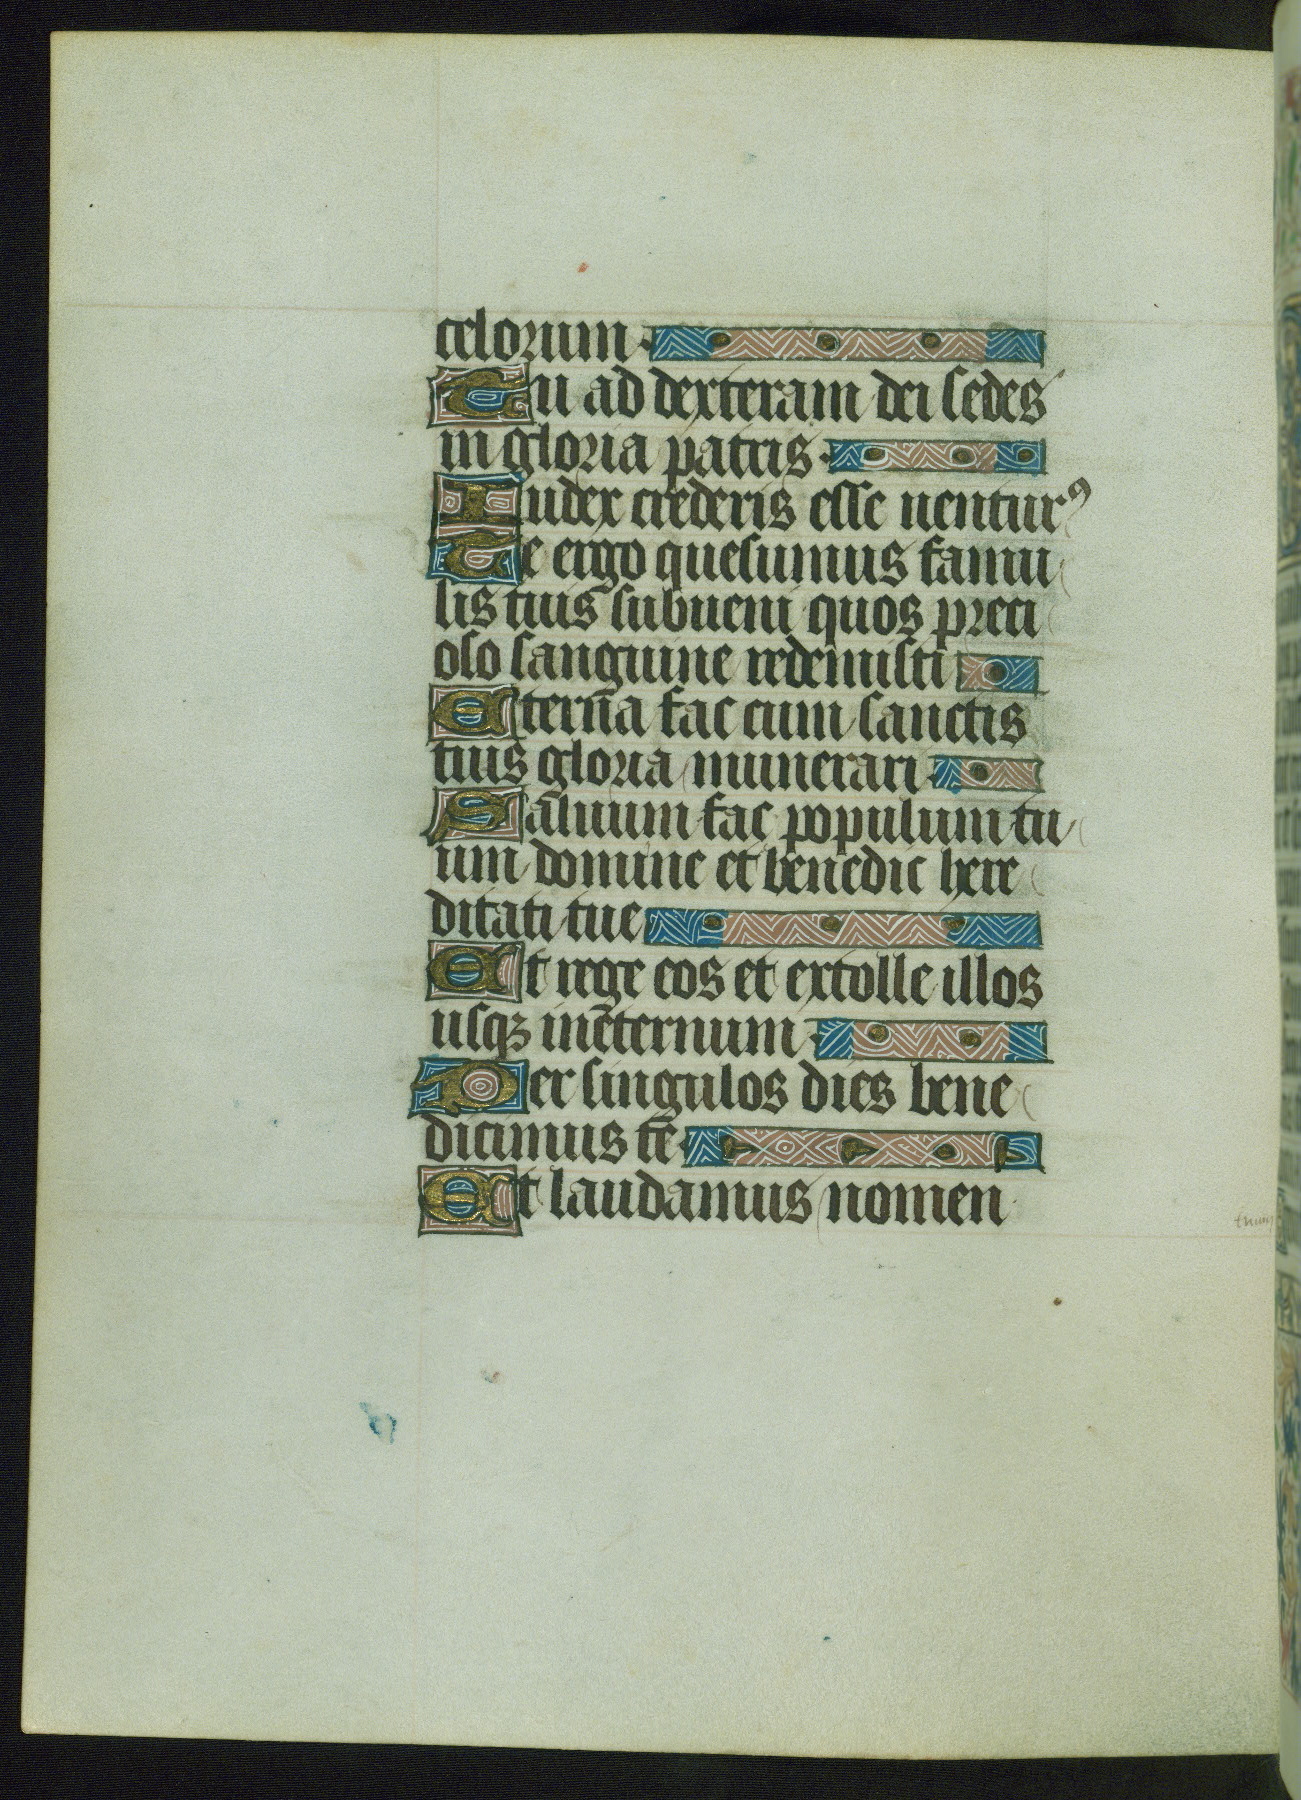 celorum
Tu ad dexteram dei sedes
in gloria patris
Iudex crederis esse uentur⁹
Te ergo quesumus famu
lis tuis subueni quos preci
oso sanguine redemisti
Eterna fac cum sanctis
tuis gloria munerari
Saluum fac populum tu
um domine et benedic here
ditati tue
Et rege eos et extolle illos
usqꝫ ineternum
Per singulos dies bene
dicimus te
Et laudamus nomen
tuum